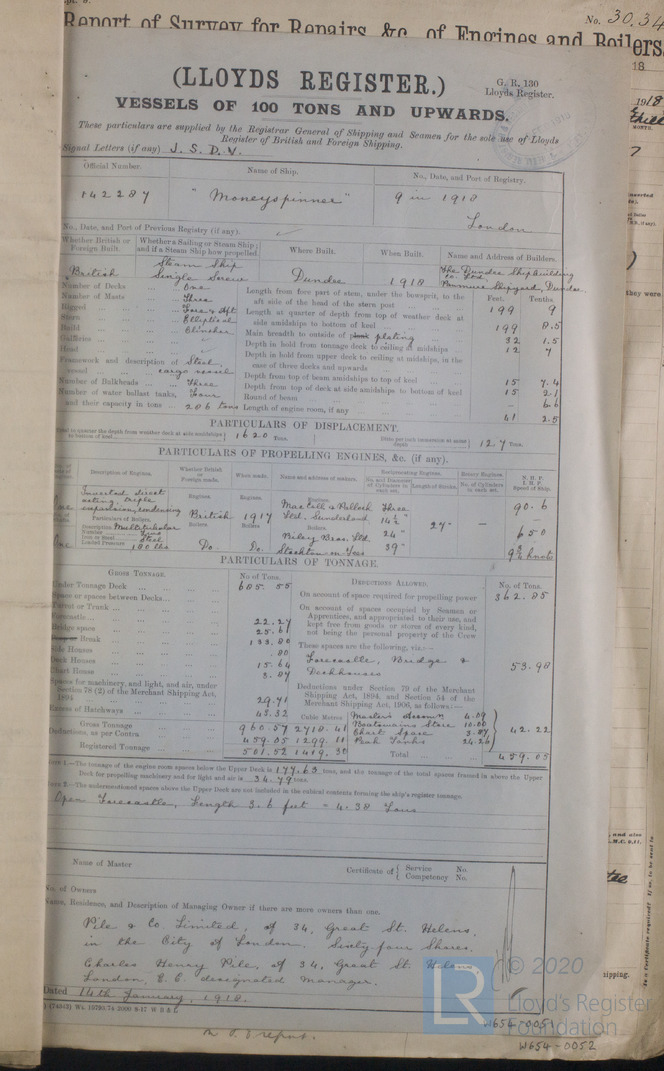 No. 30.34
Report of Survey for Repairs, &c., of Engines and Boilers
(LLOYDS REGISTER.)
G. R. 130
Lloyds Register.
VESSELS OF 100 TONS AND UPWARDS.
These particulars are supplied by the Registrar General of Shipping and Seamen for the sole use of Lloyds
Register of British and Foreign Shipping.
Signal Letters (if any) J. S. D. V.
Official Number. Name of Ship. No., Date, and Port of Registry.
142287 "Moneyspinner" 9 in 1918
London
No., Date, and Port of Previous Registry (if any).
Whether British or Foreign Built. Whether a Sailing or Steam Ship; and if a Steam Ship how propelled. Where Built. When Built. Name and Address of Builders.
British Steam Ship Single Screw Dundee 1918 The Dundee Shipbuilding Co Ltd. Shipyard, Dundee
Number of Decks One
Number of Masts Three
Rigged Fore & Aft
Stern Elliptical
Build Clincher
Galleries
Head
Framework and description of vessel Steel, cargo vessel
Number of Bulkheads Three
Number of water ballast tanks, and their capacity in tons Four 206 tons
Feet. Tenths.
Length from fore part of stem, under the bowsprit, to the aft side of the head of the stern post 199 9
Length at quarter of depth from top of weather deck at side amidships to bottom of keel 199 8.5
Main breadth to outside of plating 32 1.5
Depth in hold from tonnage deck to ceiling at midships 12 7
Depth in hold from upper deck to ceiling at midships, in the case of three decks and upwards
Depth from top of beam amidships to top of keel 15 7.4
Depth from top of deck at side amidships to bottom of keel 15 2.1
Round of beam - 6.6
Length of engine room, if any 41 2.5
PARTICULARS OF DISPLACEMENT.
1620 Tons. 12.7 Tons.
PARTICULARS OF PROPELLING ENGINES, &c. (if any).
Description of Engines. Whether British or Foreign made. When made. Name and address of makers. Reciprocating Engines. Rotary Engines. N. H. P. I. H. P. Speed of Ship.
No. and Diameter of Cylinders in each set. Length of Stroke. No. of Cylinders in each set.
One Inverted direct acting, triple expansion, condensing
Engines. British Engines. 1917 Engines. MacColl & Pollock Ltd. Sunderland Three 14½" 24" 39" 27" - - 90.6
650
9¾ knots
Particulars of Boilers.
Description Multitubular
Iron or Steel Steel
Loaded Pressure 180 lbs
One Boilers Do. Boilers Do. Boilers Riley Bros. Ltd Stockton on Tees
PARTICULARS OF TONNAGE.
GROSS TONNAGE. No. of Tons. DEDUCTIONS ALLOWED. No. of Tons.
Under Tonnage Deck 685.55
Space or spaces between Decks
Turret or Trunk
Forecastle 22.27
Bridge space 25.61
Break 133.80
Side Houses .80
Deck Houses 15.64
Chart House 3.87
Spaces for machinery, and light, and air, under Section 78 (2) of the Merchant Shipping Act, 1894 29.71
Excess of Hatchways 43.32
Gross Tonnage 960.57 2718.41
Deductions, as per Contra 459.05 1299.11
Registered Tonnage 501.52 1419.30
On account of space required for propelling power 362.85
On account of spaces occupied by Seamen or Apprentices, and appropriated to their use, and kept free from goods or stores of every kind, not being the personal property of the Crew
These spaces are the following, viz.:—
Forecastle, Bridge & Deckhouses 53.98
Deductions under Section 79 of the Merchant Shipping Act, 1894, and Section 54 of the Merchant Shipping Act, 1906, as follows:—
Cubic Metres
Master's Accom. 4.09
Boatswains Store 10.00
Chart Space 3.87
Peak Tanks 24.26
42.22
Total 459.05
Note 1.—The tonnage of the engine room spaces below the Upper Deck is 177.63 tons, and the tonnage of the total spaces framed in above the Upper
Deck for propelling machinery and for light and air is 34.79 tons.
Note 2.—The undermentioned spaces above the Upper Deck are not included in the cubical contents forming the ship's register tonnage.
Open Forecastle, Length 3.6 feet = 4.38 Tons
Name of Master Certificate of { Service No. Competency No.
No. of Owners
Name, Residence, and Description of Managing Owner if there are more owners than one.
Pile & Co. Limited, of 34, Great St. Helens,
in the City of London. Sixty four Shares.
Charles Henry Pile, of 34, Great St. Helens
London, E. C. designated manager.
Dated 14th January, 1918.
© 2020
LR Lloyd's Register Foundation
W654-0051
W654-0052